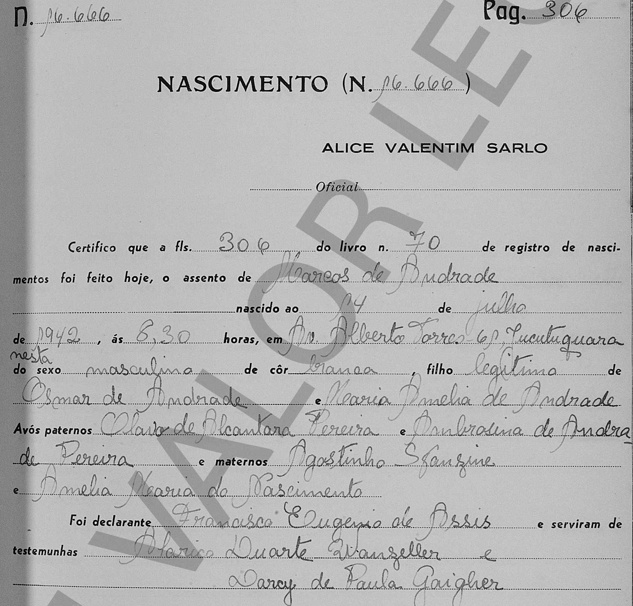 N. 16.666 Pag. 306
NASCIMENTO (N. 16.666)
ALICE VALENTIM SARLO
Oficial
Certifico que a fls. 306 do livro n. 70 de registro de nasci-
mentos foi feito hoje, o assento de Marcos de Andrade
nascido ao 14 de julho
de 1942, ás 8,30 horas, em Av. Alberto Torres 61, Jucutuquara
nesta
do sexo masculino de côr branca, filho legitimo de
Osmar de Andrade e Maria Amelia de Andrade
Avós paternos Olavo de Alcantara Pereira e Ambrosina de Andra
de Pereira e maternos Agostinho
e Amelia Maria do Nascimento
Foi declarante Francisco Eugenio de Assis e serviram de
testemunhas Alarico Duarte Wanzeller e
Darcy de Paula Gaigher
VALOR LEG